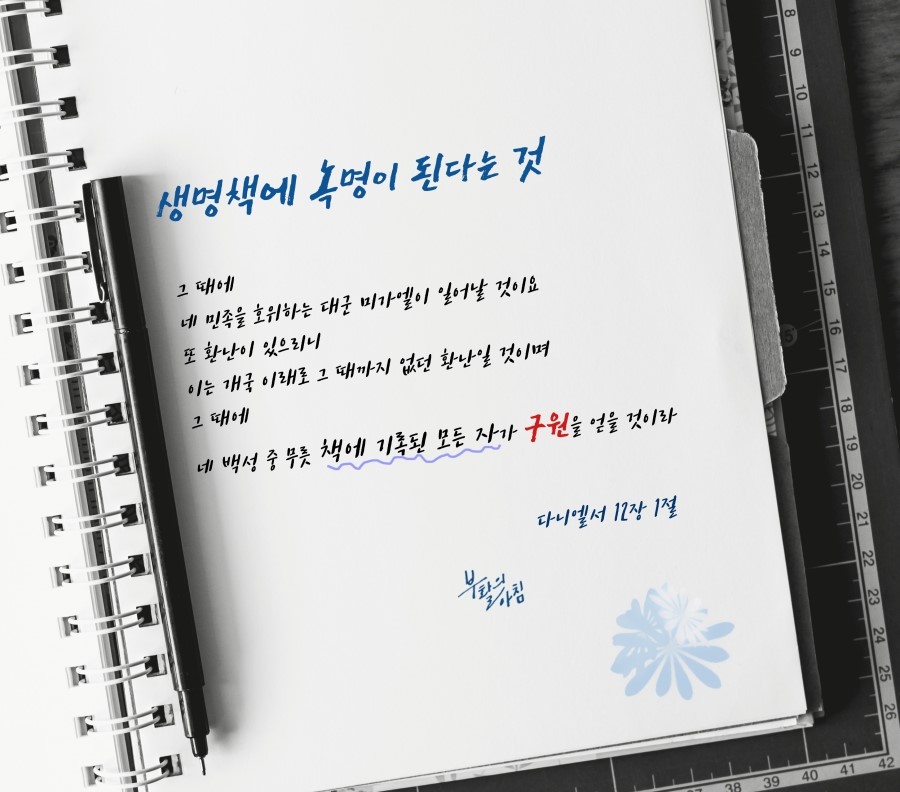 생명책에 녹명이 된다는 것
그 때에
네 민족을 호위하는 대군 미가엘이 일어날 것이요
또 환난이 있으리니
이는 개국 이래로 그 때까지 없던 환난일 것이며
그 때에
네 백성 중 무릇 책에 기록된 모든 자가 구원을 얻을 것이라
다니엘서 12장 1절
부활의
아침
8
9
10
11
12
13
14
15
16
17
18
19
20
21
22
23
24
25
26
37
38
39
40
41
42